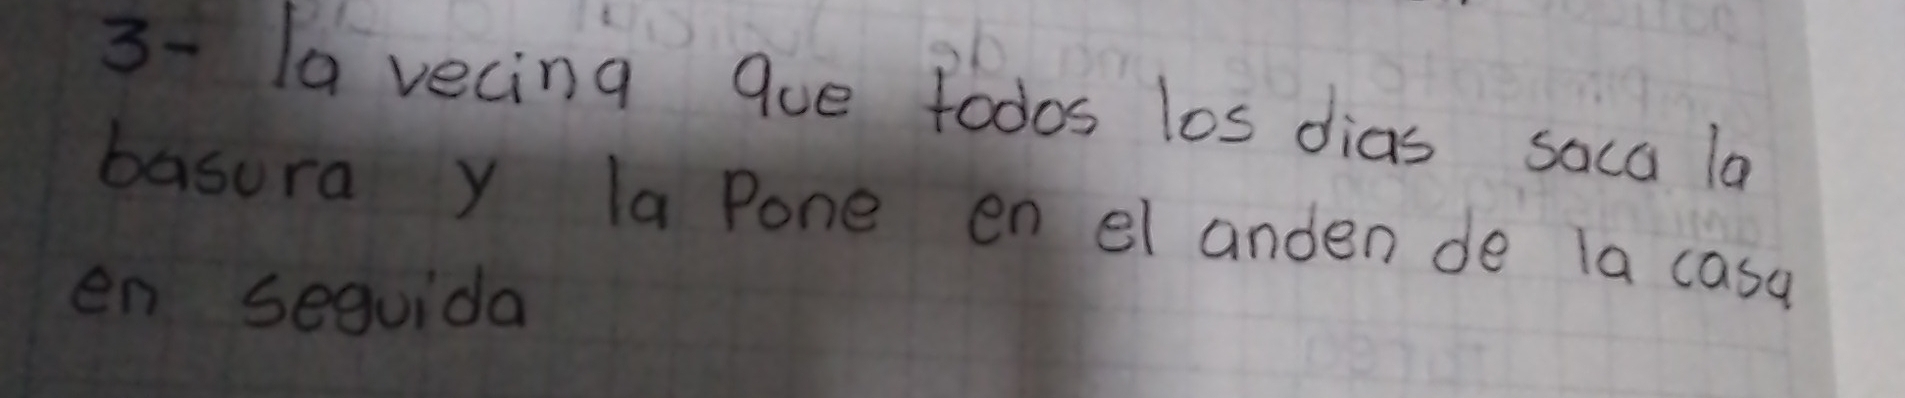 3- la vecina que todos los dias saca la
basura y la Pone en el anden de la casa
en seguida